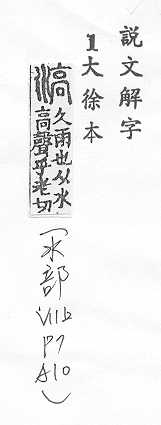 説文解字
1大徐本
滈
久雨也从水
高聲乎老切
(水部 P7 A10)